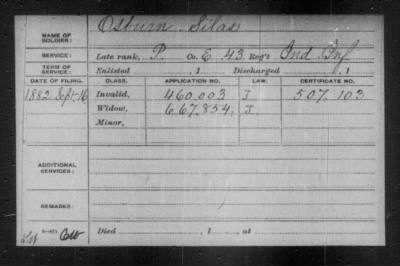 NAME OF SOLDIER: Osburn, Silas
SERVICE: Late rank, P. Co. E, 43 Reg't Ind Inf
TERM OF SERVICE: Enlisted , 1 Discharged , 1
DATE OF FILING. CLASS. APPLICATION NO. LAW. CERTIFICATE NO.
1882 Sept. 16 Invalid, 460.003 J 507.103
Widow, 667.854, J.
Minor,
ADDITIONAL SERVICES:
REMARKS:
Died , 1 , at